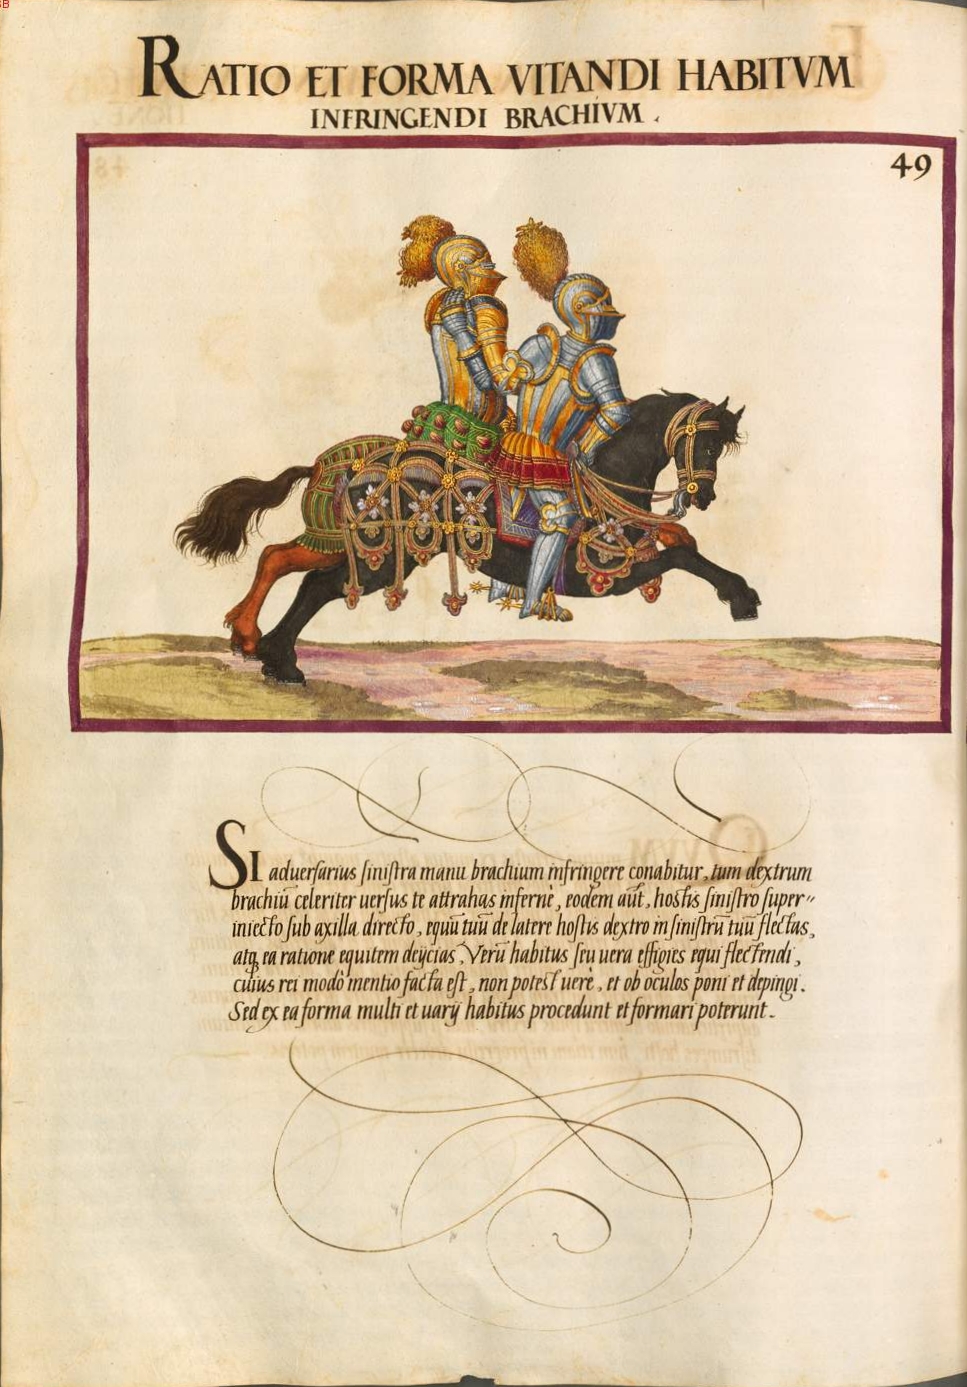 RATIO ET FORMA VITANDI HABITVM
INFRINGENDI BRACHIVM.
49
SI aduersarius sinistra manu brachium infringere conabitur, tum dextrum
brachiũ celeriter uersus te attrahas infernè, eodem aũt, hostis sinistro super〃
iniecto sub axilla directo, equũ tuũ de latere hostis dextro in sinistrũ tuũ flectas,
atq̃ ea ratione equitem deijcias, Verũ habitus seu uera effigies equi flectendi,
cuius rei modò mentio facta est, non potest uerè, et ob oculos poni et depingi.
Sed ex ea forma multi et uarij habitus procedunt et formari poterunt.